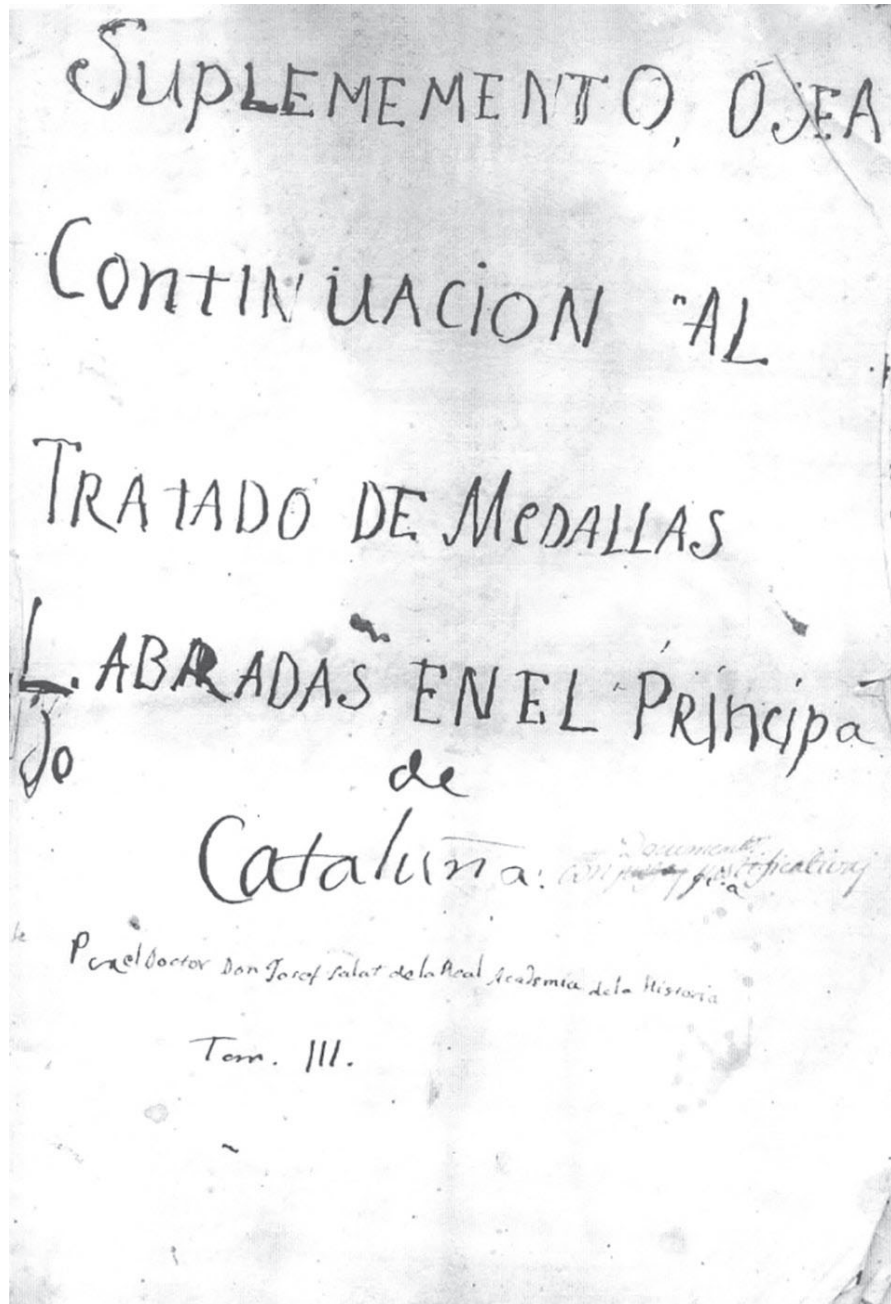 SUPLEMEMENTO, OSEA
CONTINUACION AL
TRATADO DE MEDALLAS
LABRADAS EN EL PRINCIPA
do
de
Cataluña:
Documentos
justificativos
Por el Doctor Don Josef Salat de la Real Academia de la Historia
Tom. III.